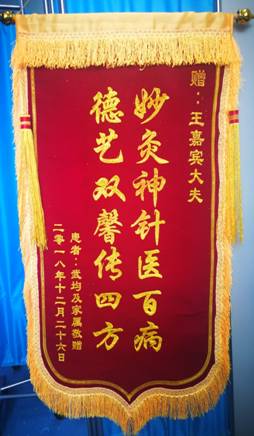 赠：王嘉宾大夫
妙灸神针医百病
德艺双馨传四方
患者：武均及家属敬赠
二零一八年十二月二十六日